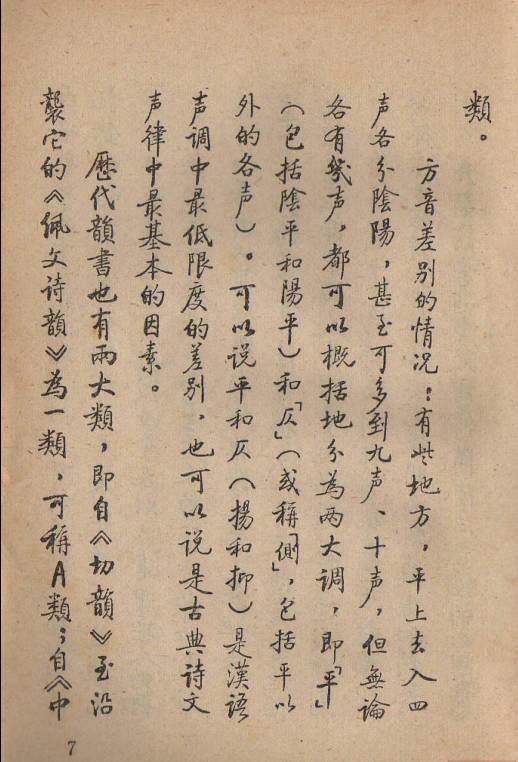 類。
方音差别的情况：有些地方，平上去入四
声各分陰陽，甚至可多到九声、十声，但無論
各有幾声，都可以概括地分為两大調，即「平」
（包括陰平和陽平）和「仄」（或稱「側」，包括平以
外的各声）。可以说平和仄（揚和抑）是漢語
声调中最低限度的差别，也可以说是古典诗文
声律中最基本的因素。
歷代韻書也有兩大類，即自《切韻》至沿
襲它的《佩文诗韻》為一類，可稱A類；自《中
7